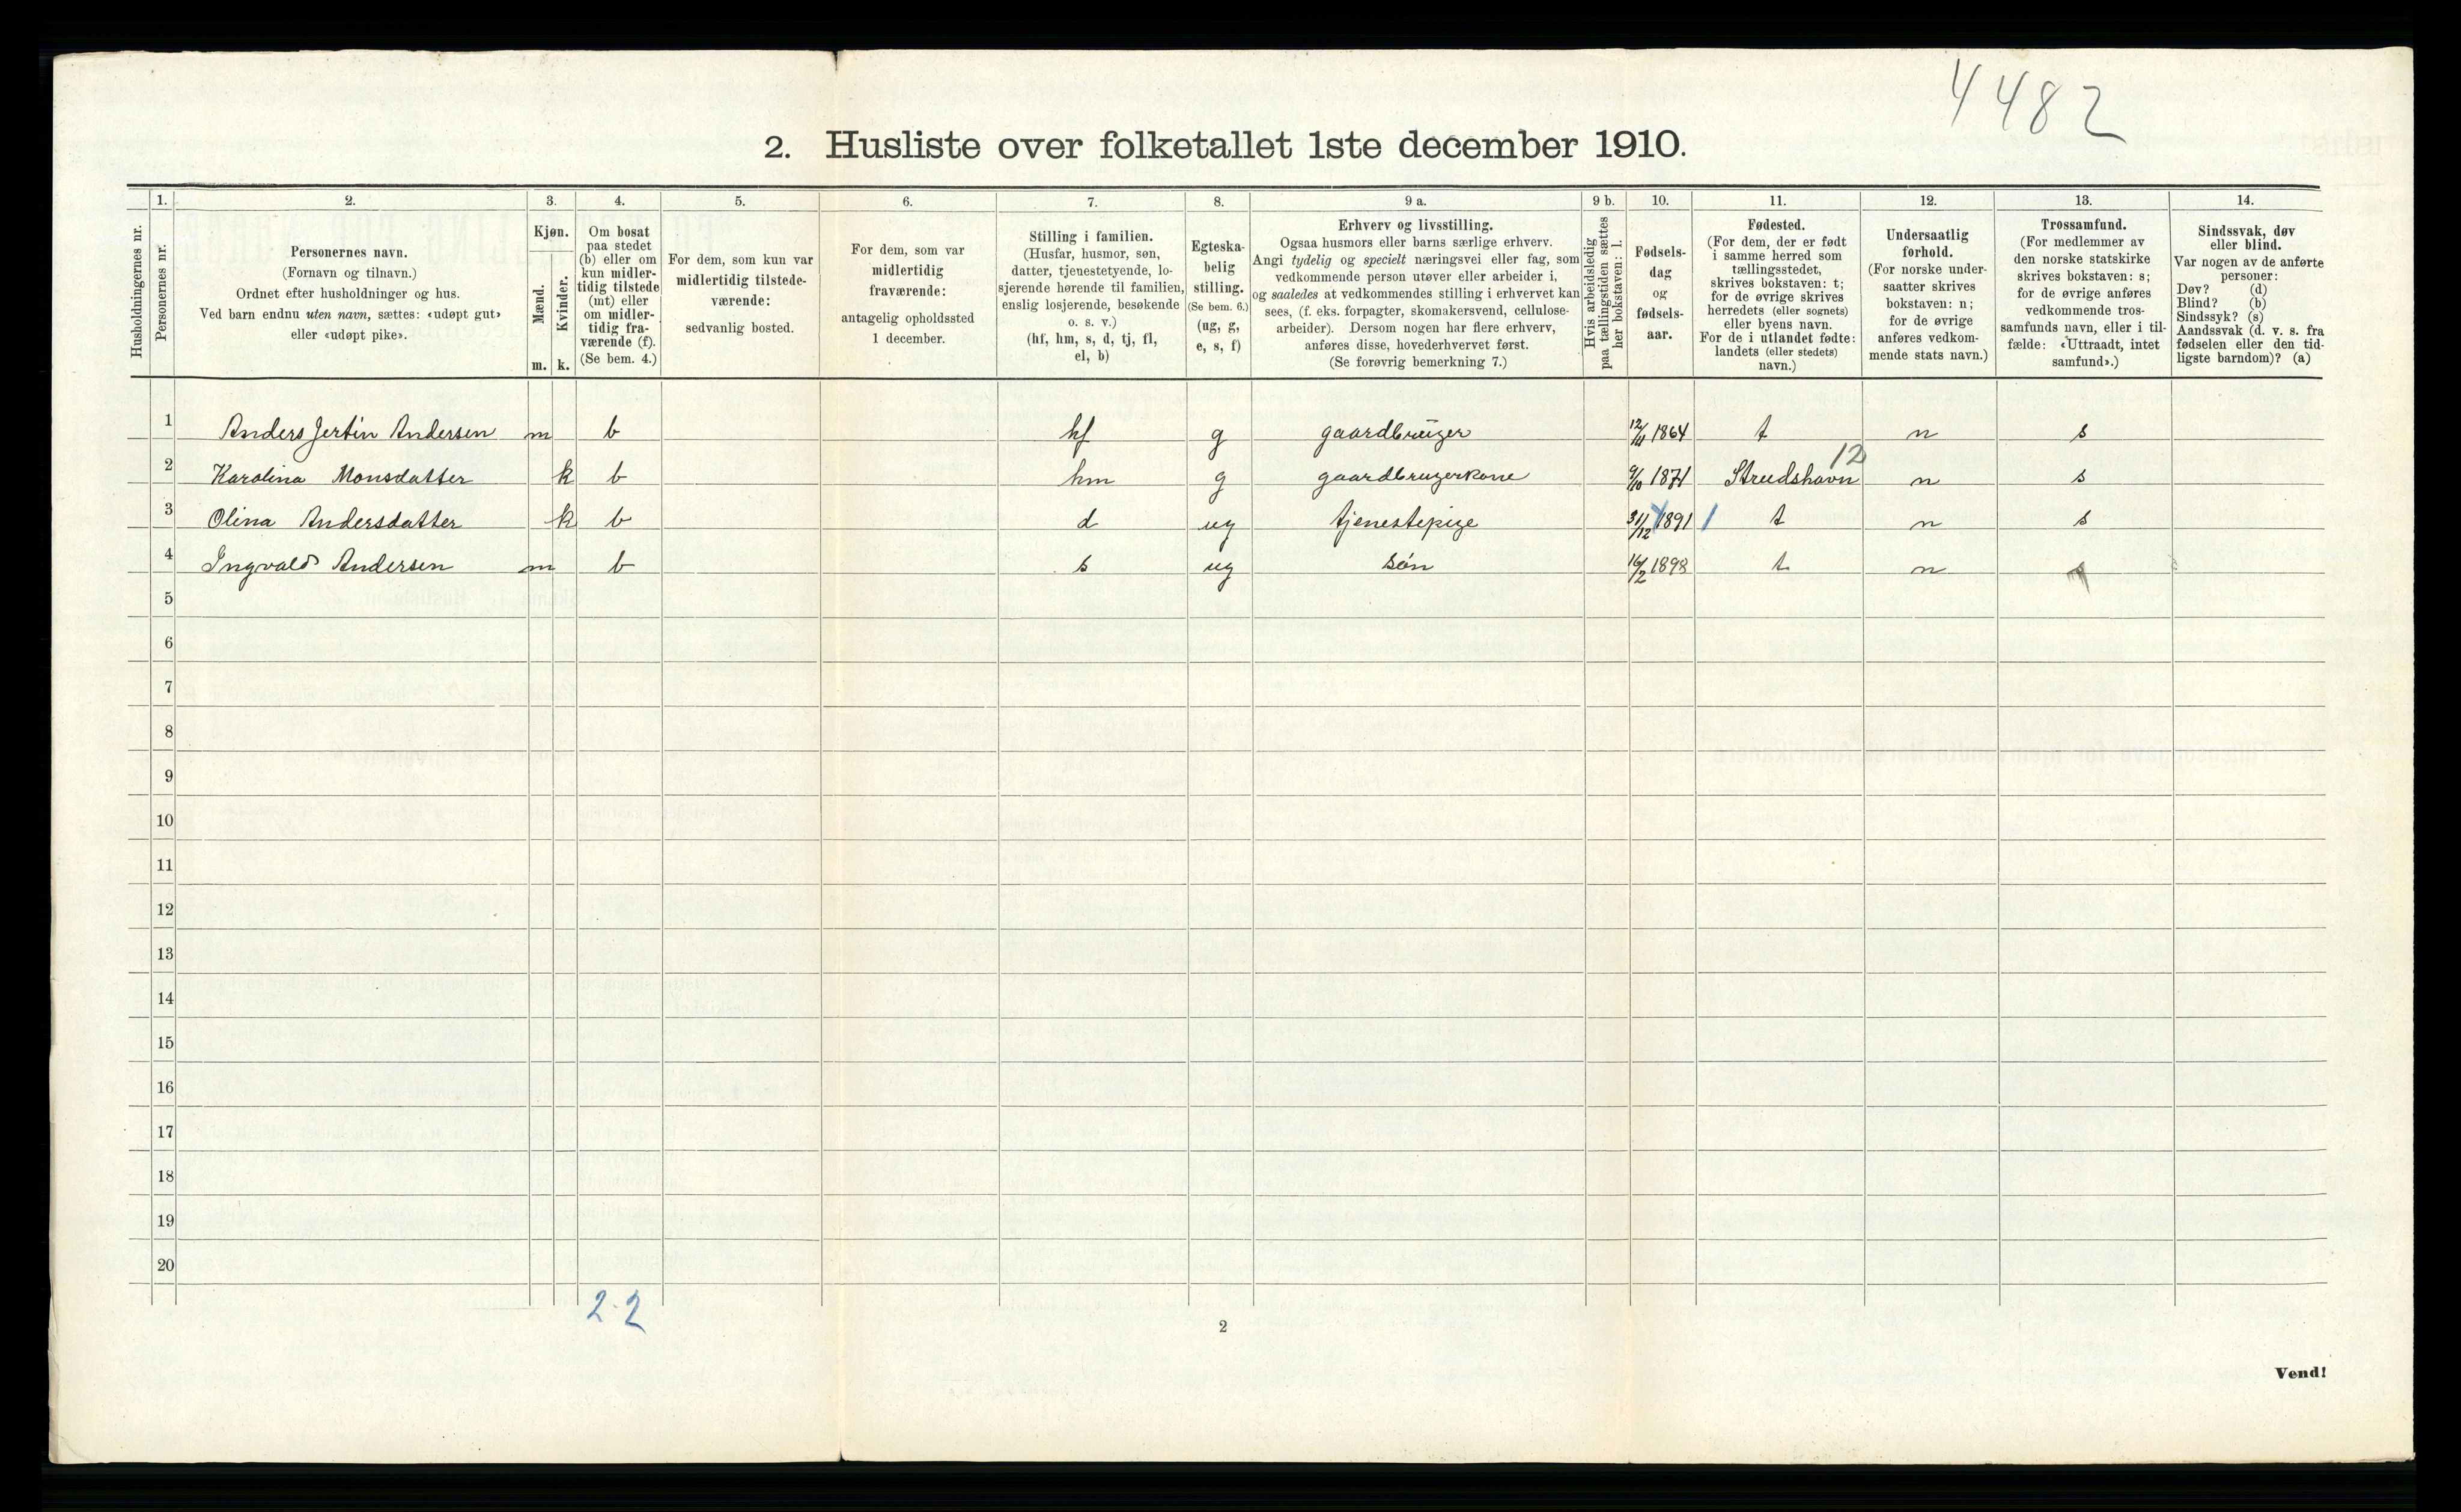 4482
2. Husliste over folketallet 1ste december 1910.
Husholdningernes nr.
1.
Personernes nr.
2.
Personernes navn.
(Fornavn og tilnavn.)
Ordnet efter husholdninger og hus.
Ved barn endnu uten navn, sættes: «udøpt gut»
eller «udøpt pike».
3.
Kjøn.
Mænd.
Kvinder.
m. k.
4.
Om bosat
paa stedet
(b) eller om
kun midler-
tidig tilstede
(mt) eller
om midler-
tidig fra-
værende (f).
(Se bem. 4.)
5.
For dem, som kun var
midlertidig tilstede-
værende:
sedvanlig bosted.
6.
For dem, som var
midlertidig
fraværende:
antagelig opholdssted
1 december.
7.
Stilling i familien.
(Husfar, husmor, søn,
datter, tjenestetyende, lo-
sjerende hørende til familien,
enslig losjerende, besøkende
o. s. v.)
(hf, hm, s, d, tj, fl,
el, b)
8.
Egteska-
belig
stilling.
(Se bem. 6.)
(ug, g,
e, s, f)
9 a.
Erhverv og livsstilling.
Ogsaa husmors eller barns særlige erhverv.
Angi tydelig og specielt næringsvei eller fag, som
vedkommende person utøver eller arbeider i,
og saaledes at vedkommendes stilling i erhvervet kan
sees, (f. eks. forpagter, skomakersvend, cellulose-
arbeider). Dersom nogen har flere erhverv,
anføres disse, hovederhvervet først.
(Se forøvrig bemerkning 7.)
9 b.
Hvis arbeidsledig
paa tællingstiden sættes
her bokstaven: l.
10.
Fødsels-
dag
og
fødsels-
aar.
11.
Fødested.
(For dem, der er født
i samme herred som
tællingsstedet,
skrives bokstaven: t;
for de øvrige skrives
herredets (eller sognets)
eller byens navn.
For de i utlandet fødte:
landets (eller stedets)
navn.)
12.
Undersaatlig
forhold.
(For norske under-
saatter skrives
bokstaven: n;
for de øvrige
anføres vedkom-
mende stats navn.)
13.
Trossamfund.
(For medlemmer av
den norske statskirke
skrives bokstaven: s;
for de øvrige anføres
vedkommende tros-
samfunds navn, eller i til-
fælde: «Uttraadt, intet
samfund».)
14.
Sindssvak, døv
eller blind.
Var nogen av de anførte
personer:
Døv? (d)
Blind? (b)
Sindssyk? (s)
Aandssvak (d. v. s. fra
fødselen eller den tid-
ligste barndom)? (a)
1 Anders Jertin Andersen m b hf g gaardbruger 12/11 1864 t n s
12
2 Karolina Monsdatter k b hm g gaardbrugerkone 9/10 1871 Strudshavn n s
3 Olina Andersdatter k b d ug tjenestepige 31/12 1891 t n s
4 Ingvald Andersen m b s ug søn 16/2 1898 t n s
5
6
7
8
9
10
11
12
13
14
15
16
17
18
19
20
2-2
2
Vend!